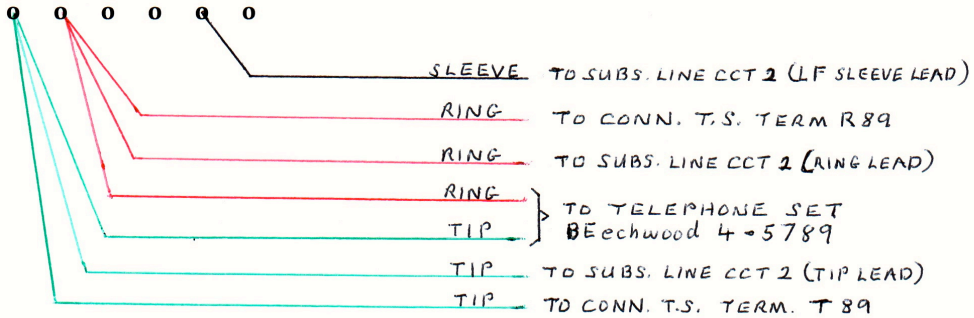 o o o o o o
SLEEVE TO SUBS. LINE CCT 2 (LF SLEEVE LEAD)
RING TO CONN. T.S. TERM R89
RING TO SUBS. LINE CCT 2 (RING LEAD)
RING
TO TELEPHONE SET
TIP BEechwood 4-5789
TIP TO SUBS. LINE CCT 2 (TIP LEAD)
TIP TO CONN. T.S. TERM. T 89